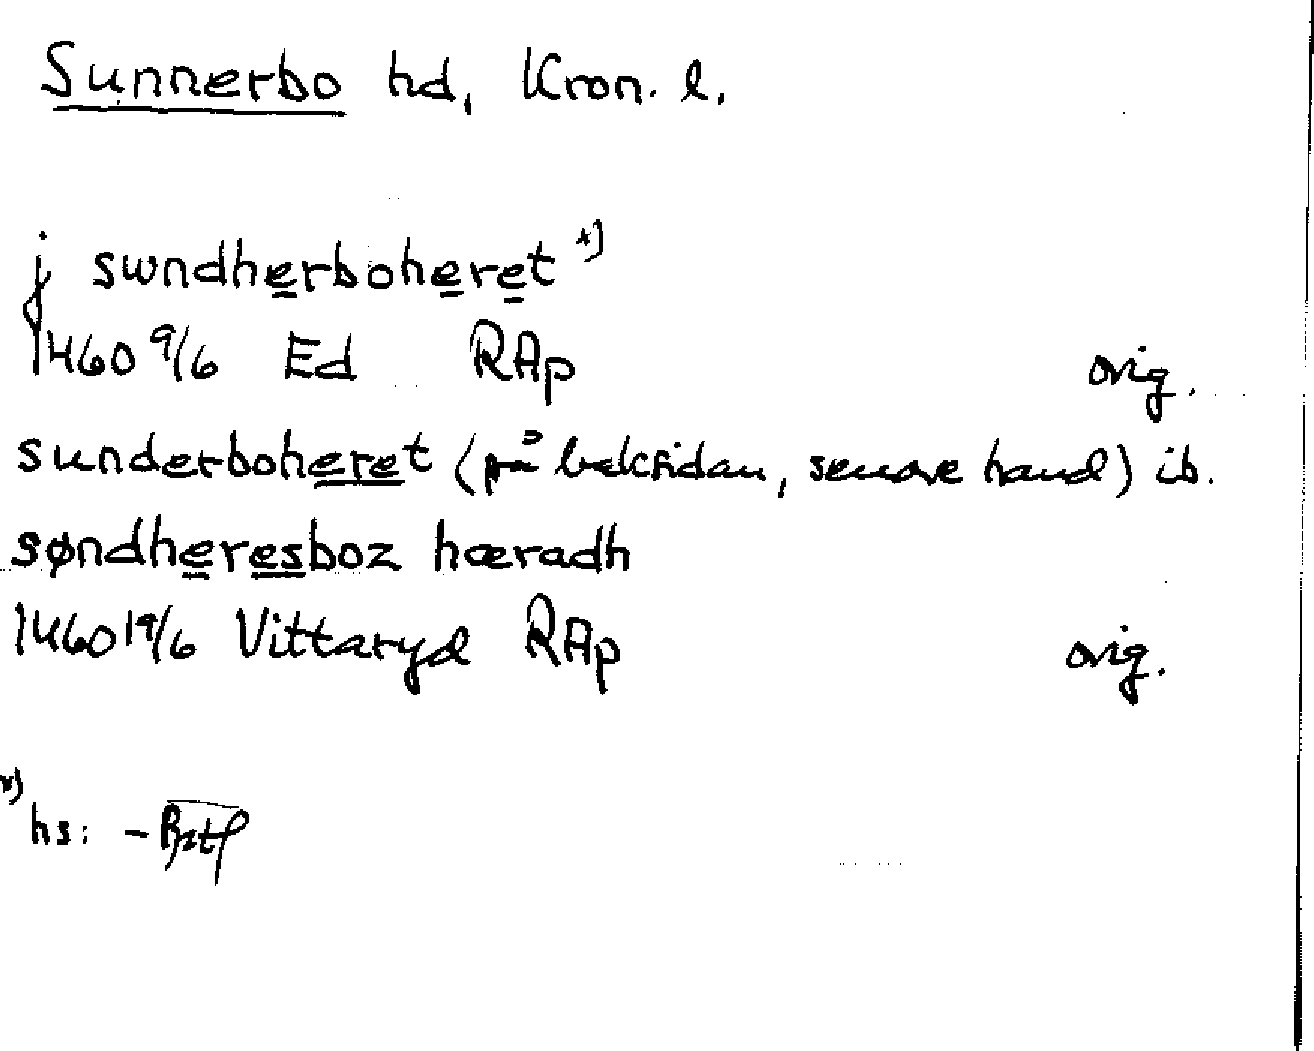 Sunnerbo hd, Kron. l.
j swndherboheret x)
1460 9/6 Ed RAp orig.
sunderboheret (på baksidan, senare hand) ib.
søndheresboz hæradh
1460 19/6 Vittaryd RAp orig.
x) hs: